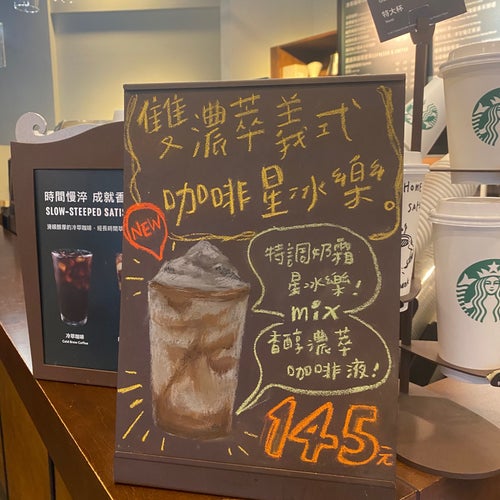 特大杯
雙濃萃義式
咖啡星冰樂。
NEW
特調奶霜
星冰樂!
mix
香醇濃萃
咖啡液!
145元
時間慢淬 成就香
SLOW-STEEPED SATIS
冷萃咖啡
Cold Brew Coffee
HOME